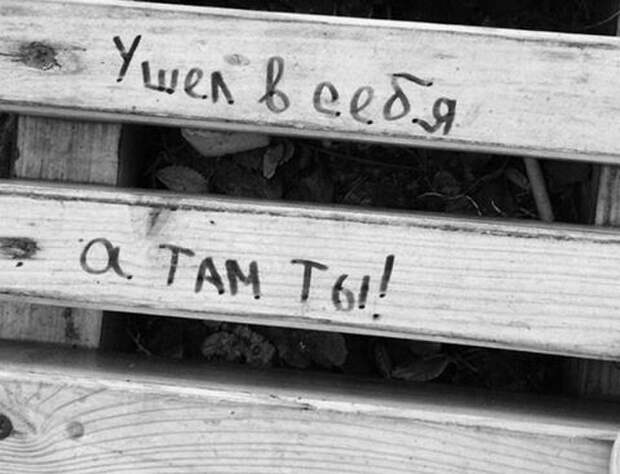 Ушел в себя
а ТАМ ТЫ!